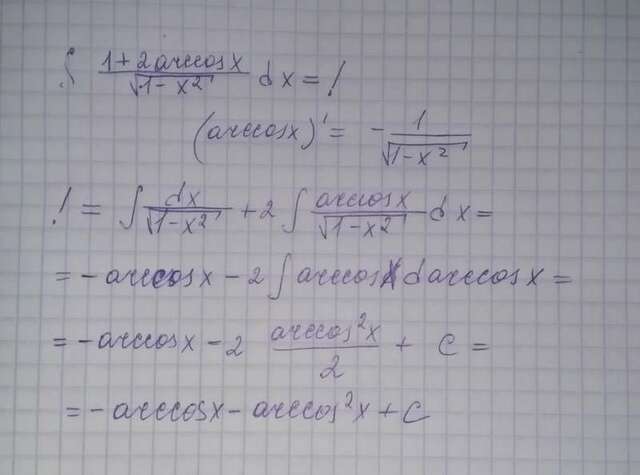 ∫ (1+2arccosx)/√(1-x²) dx = !
(arccosx)' = - 1/√(1-x²)
! = ∫ dx/√(1-x²) + 2 ∫ arccosx/√(1-x²) dx =
= -arccosx - 2 ∫ arccosx d arccosx =
= -arccosx - 2 arccos²x/2 + C =
= -arccosx - arccos²x + C